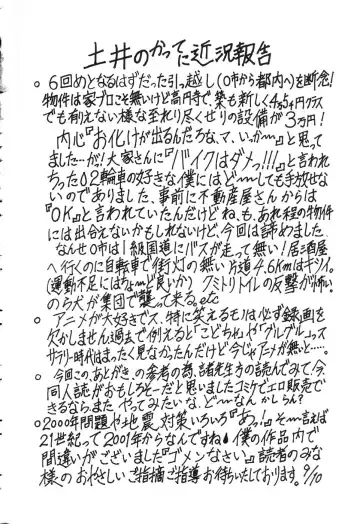 土井のかってに近況報告
○ 6回めとなるはずだった引っ越し(O市から都内へ)を断念!
物件は家プロこそ無いけど高円寺で、築も新しく4・5万円クラス
でも有えない様な至れり尽くせりの設備が3万円!
内心『お化けが出るんだろな、マ、いっか〜』と思って
ました…が!大家さんに『バイクはダメっ!!!』と言われ
ちった02輪車の好きな僕にはど〜しても手放せな
いのでありました、事前に不動産屋さんからは
『OK』と言われていたんだけどね、も、あれ程の物件
には出会えないかもしれないけど、今回は諦めました.
なんせO市は1級国道にバスが走って無い!居酒屋
へ行くのに自転車で(街灯の無い)片道4.6Kmはキツイ。
(運動不足にはあ〜ど良いか)クミトリトイレの反撃が怖い。
のら犬が集団で襲って来る。etc
○ アニメが大好きでス、特に笑えるモノは必ず録画を
欠かしません(過去で例えると『こどちゃ』や『グルグル』…)ス
サラリー時代はまったく見なかったんだけど今じゃアニメが無いと……。
○ 今回この、あとがき、の筆者の為、諸先生方の読んでみて、今、
同人誌がおもしろそーだと思いましたコミケでエロ販売で
きるならまた やってみたいな、ど〜なん かしらん?
○ 2000年問題や地震対策いろいろ『あっ!』そー言えば
21世紀って2001年からなんですね、僕の作品内で
間違いがございました『ゴメンなさい』読者のみな
様の おやさしい ご指摘ご指導 お待ちいたしております。9/10